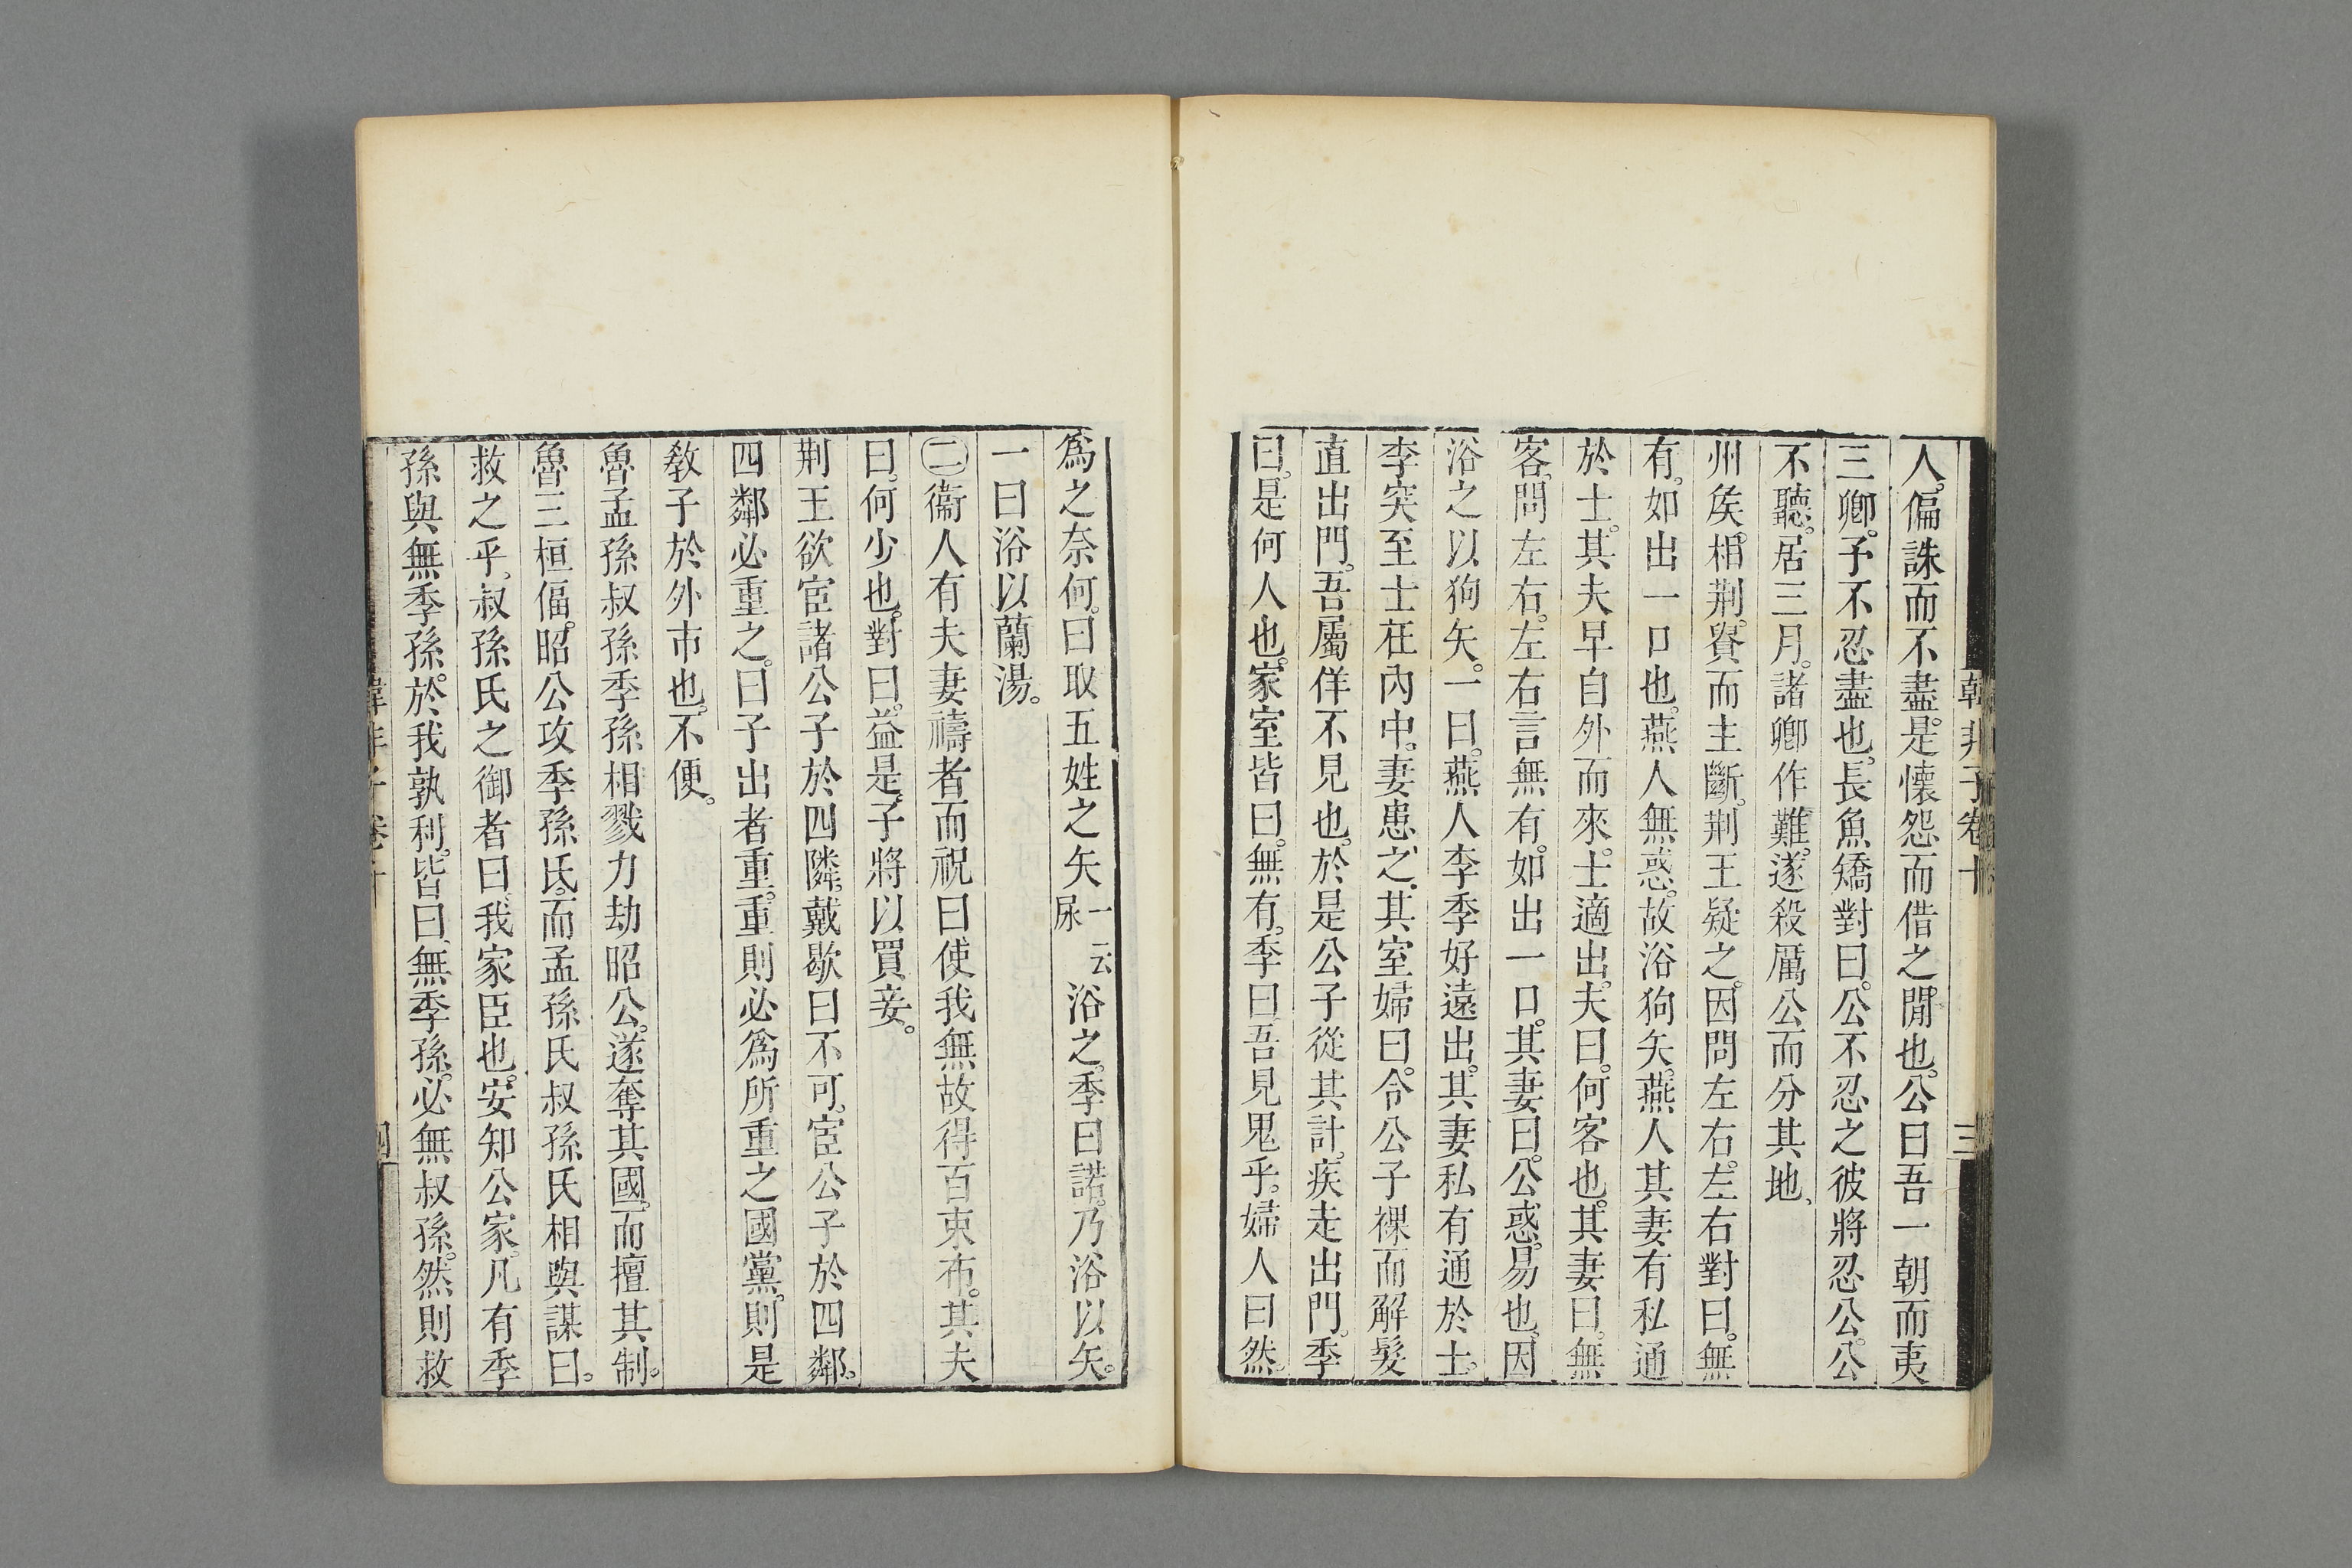 韓非子卷十
三
人。偏誅而不盡。是懷怨而借之。閒也。公曰吾一朝而夷
三卿。予不忍盡也。長魚矯對曰。公不忍之彼將忍公。公
不聽。居三月。諸卿作難。遂殺厲公而分其地、
州矦。相荆。貲而主斷。荆王疑之。因問左右。左右對曰。無
有。如出一口也。燕人無惑。故浴狗矢。燕人其妻有私通
於士。其夫早自外而來。士適出。夫曰。何客也。其妻曰。無
客。問左右。左右言無有。如出一口。其妻曰。公惑。易也。因
浴之以狗矢。一曰。燕人李季好遠出。其妻私有通於士。
李突至士在內中。妻患之。其室婦曰。令公子裸而解髮
直出門。吾屬佯不見也。於是公子從其計。疾走出門。季
曰。是何人也。家室皆曰。無有。季曰吾見鬼乎。婦人曰然。
爲之奈何。曰取五姓之矢一云尿浴之。季曰諾。乃浴以矢。
一曰浴以蘭湯。
㊁衞人有夫妻禱者而祝曰使我無故得百束布。其夫
曰。何少也。對曰。益是。子將以買妾。
荆王欲宦諸公子於四隣。戴歇曰不可。宦公子於四鄰。
四鄰必重之。曰子出者重。重則必爲所重之國黨。則是
敎子於外市也。不便。
魯孟孫叔孫季孫相戮力劫昭公。遂奪其國。而擅其制。
魯三桓偪。昭公攻季孫氏。而孟孫氏叔孫氏相與謀曰。
救之乎。叔孫氏之御者曰。我家臣也。安知公家。凡有季
孫與無季孫。於我孰利。皆曰。無季孫。必無叔孫。然則救
韓非子卷十
四